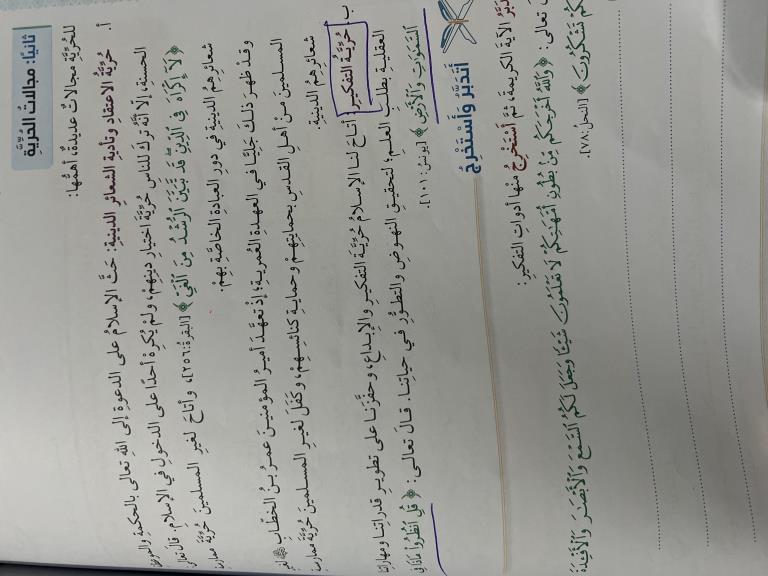 ثانيًا: مجالاتُ الحُرِّيَّةِ
للحُرِّيَّةِ مجالاتٌ عديدةٌ، أهمُّها:
أ. حُرِّيَّةُ الاعتقادِ وتأديةِ الشعائرِ الدينيةِ: حَثَّ الإسلامُ على الدعوةِ إلى اللهِ تعالى بالحكمةِ والموعظةِ
الحسنةِ، إلّا أنَّهُ تركَ للناسِ حُرِّيَّةَ اختيارِ دينِهِمْ، ولمْ يُكرِهْ أحدًا على الدخولِ في الإسلامِ. قالَ تعالى:
﴿لَآ إِكْرَاهَ فِي ٱلدِّينِ قَد تَّبَيَّنَ ٱلرُّشْدُ مِنَ ٱلْغَيِّ﴾ [البقرة: ٢٥٦]، وأتاحَ لغيرِ المسلمينَ حُرِّيَّةَ ممارسةِ
شعائرِهِمُ الدينيةِ في دورِ العبادةِ الخاصَّةِ بِهِمْ.
وقدْ ظهرَ ذلكَ جليًّا في العهدةِ العُمريةِ؛ إذْ تعهَّدَ أميرُ المؤمنينَ عمرُ بنُ الخطّابِ
المسلمينَ مِنْ أهلِ القدسِ بحمايتِهِمْ وحمايةِ كنائسِهِمْ، وكفَلَ لغيرِ المسلمينَ حُرِّيَّةَ ممارسةِ
شعائرِهِمُ الدينيةِ.
ب. حُرِّيَّةُ التفكيرِ: أتاحَ لنا الإسلامُ حُرِّيَّةَ التفكيرِ والإبداعِ، وحفَّزَنا على تطويرِ قدراتِنا ومهاراتِنا
العقليةِ بطلبِ العلمِ؛ لتحقيقِ النهوضِ والتطوُّرِ في حياتِنا. قالَ تعالى: ﴿قُلِ ٱنظُرُوا۟ مَاذَا فِي
ٱلسَّمَٰوَٰتِ وَٱلْأَرْضِ﴾ [يونس: ١٠١].
أَتَدَبَّرُ وَأَسْتَخْرِجُ
الآيةَ الكريمةَ، ثمَّ أَسْتَخْرِجُ منْها أدواتِ التفكيرِ:
تعالى: ﴿وَٱللَّهُ أَخْرَجَكُم مِّنۢ بُطُونِ أُمَّهَٰتِكُمْ لَا تَعْلَمُونَ شَيْـًٔا وَجَعَلَ لَكُمُ ٱلسَّمْعَ وَٱلْأَبْصَٰرَ وَٱلْأَفْـِٔدَةَ
تَشْكُرُونَ﴾ [النحل: ٧٨].